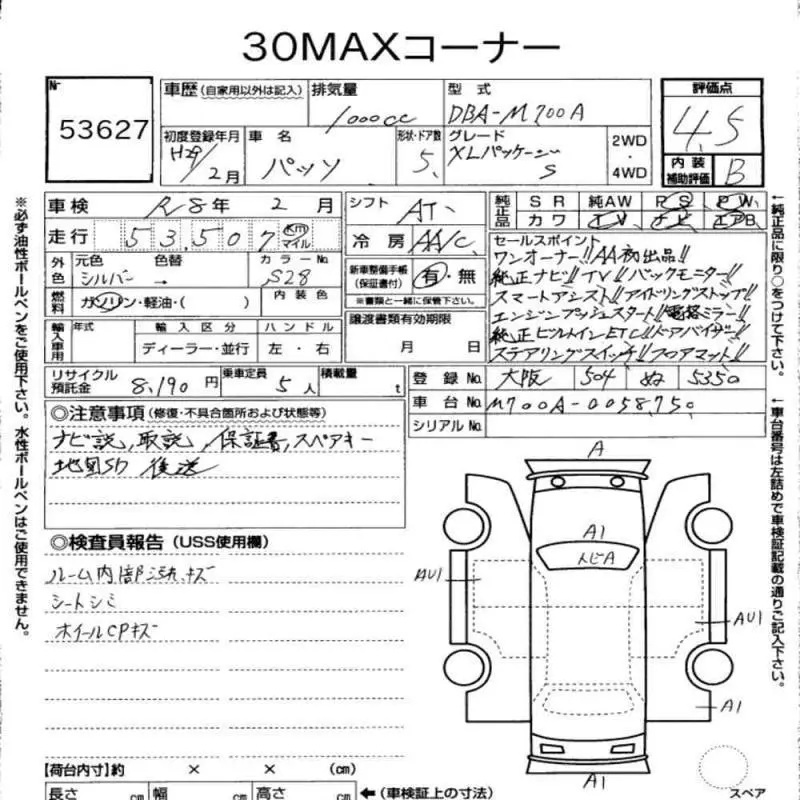 30MAXコーナー
№ 53627
車歴 (自家用以外は記入) 排気量 1000cc 型式 DBA-M700A 評価点 4.5
初度登録年月 H29/2月 車名 パッソ 形状・ドア数 5 グレード XLパッケージ S 2WD ・ 4WD 内装補助評価 B
車検 R8年 2月 シフト AT 純正品 SR 純AW PS PW
走行 53,507 km マイル 冷房 AA/C カワ TV ナビ エアB
外色 元色 シルバー 色替 → カラーNo. S28 新車整備手帳 (保証書付) 有・無 ※書類と一緒に保管下さい。
燃料 ガソリン・軽油・( ) 内装色
セールスポイント
ワンオーナー!! AA初出品!!
純正ナビ!! TV!! バックモニター!!
スマートアシスト!! アイドリングストップ!!
エンジンプッシュスタート!! 電格ミラー!!
純正ビルトインETC!! ドアバイザー!!
ステアリングスイッチ!! フロアマット!!
輸入車用 年式 輸入区分 ハンドル 譲渡書類有効期限
ディーラー・並行 左・右 月 日
リサイクル預託金 8,190円 乗車定員 5人 積載量 t 登録No. 大阪 504 ぬ 5350
車台No. M700A-0058750
シリアルNo.
◎注意事項 (修復・不具合箇所および状態等)
ナビ説, 取説, 保証書, スペアキー
地図SD 後送
◎検査員報告 (USS使用欄)
ルーム内部汚れ、キズ
シートシミ
ホイールCPキズ
A
A1
トビA
AU1
AU1
A1
A1
スペア
【荷台内寸】約 × × (cm)
長さ cm 幅 cm 高さ cm ←(車検証上の寸法)
※必ず油性ボールペンをご使用下さい。水性ボールペンはご使用できません。
←純正品に限り○をつけて下さい。
←車台番号は左詰めで車検証記載の通りご記入下さい。